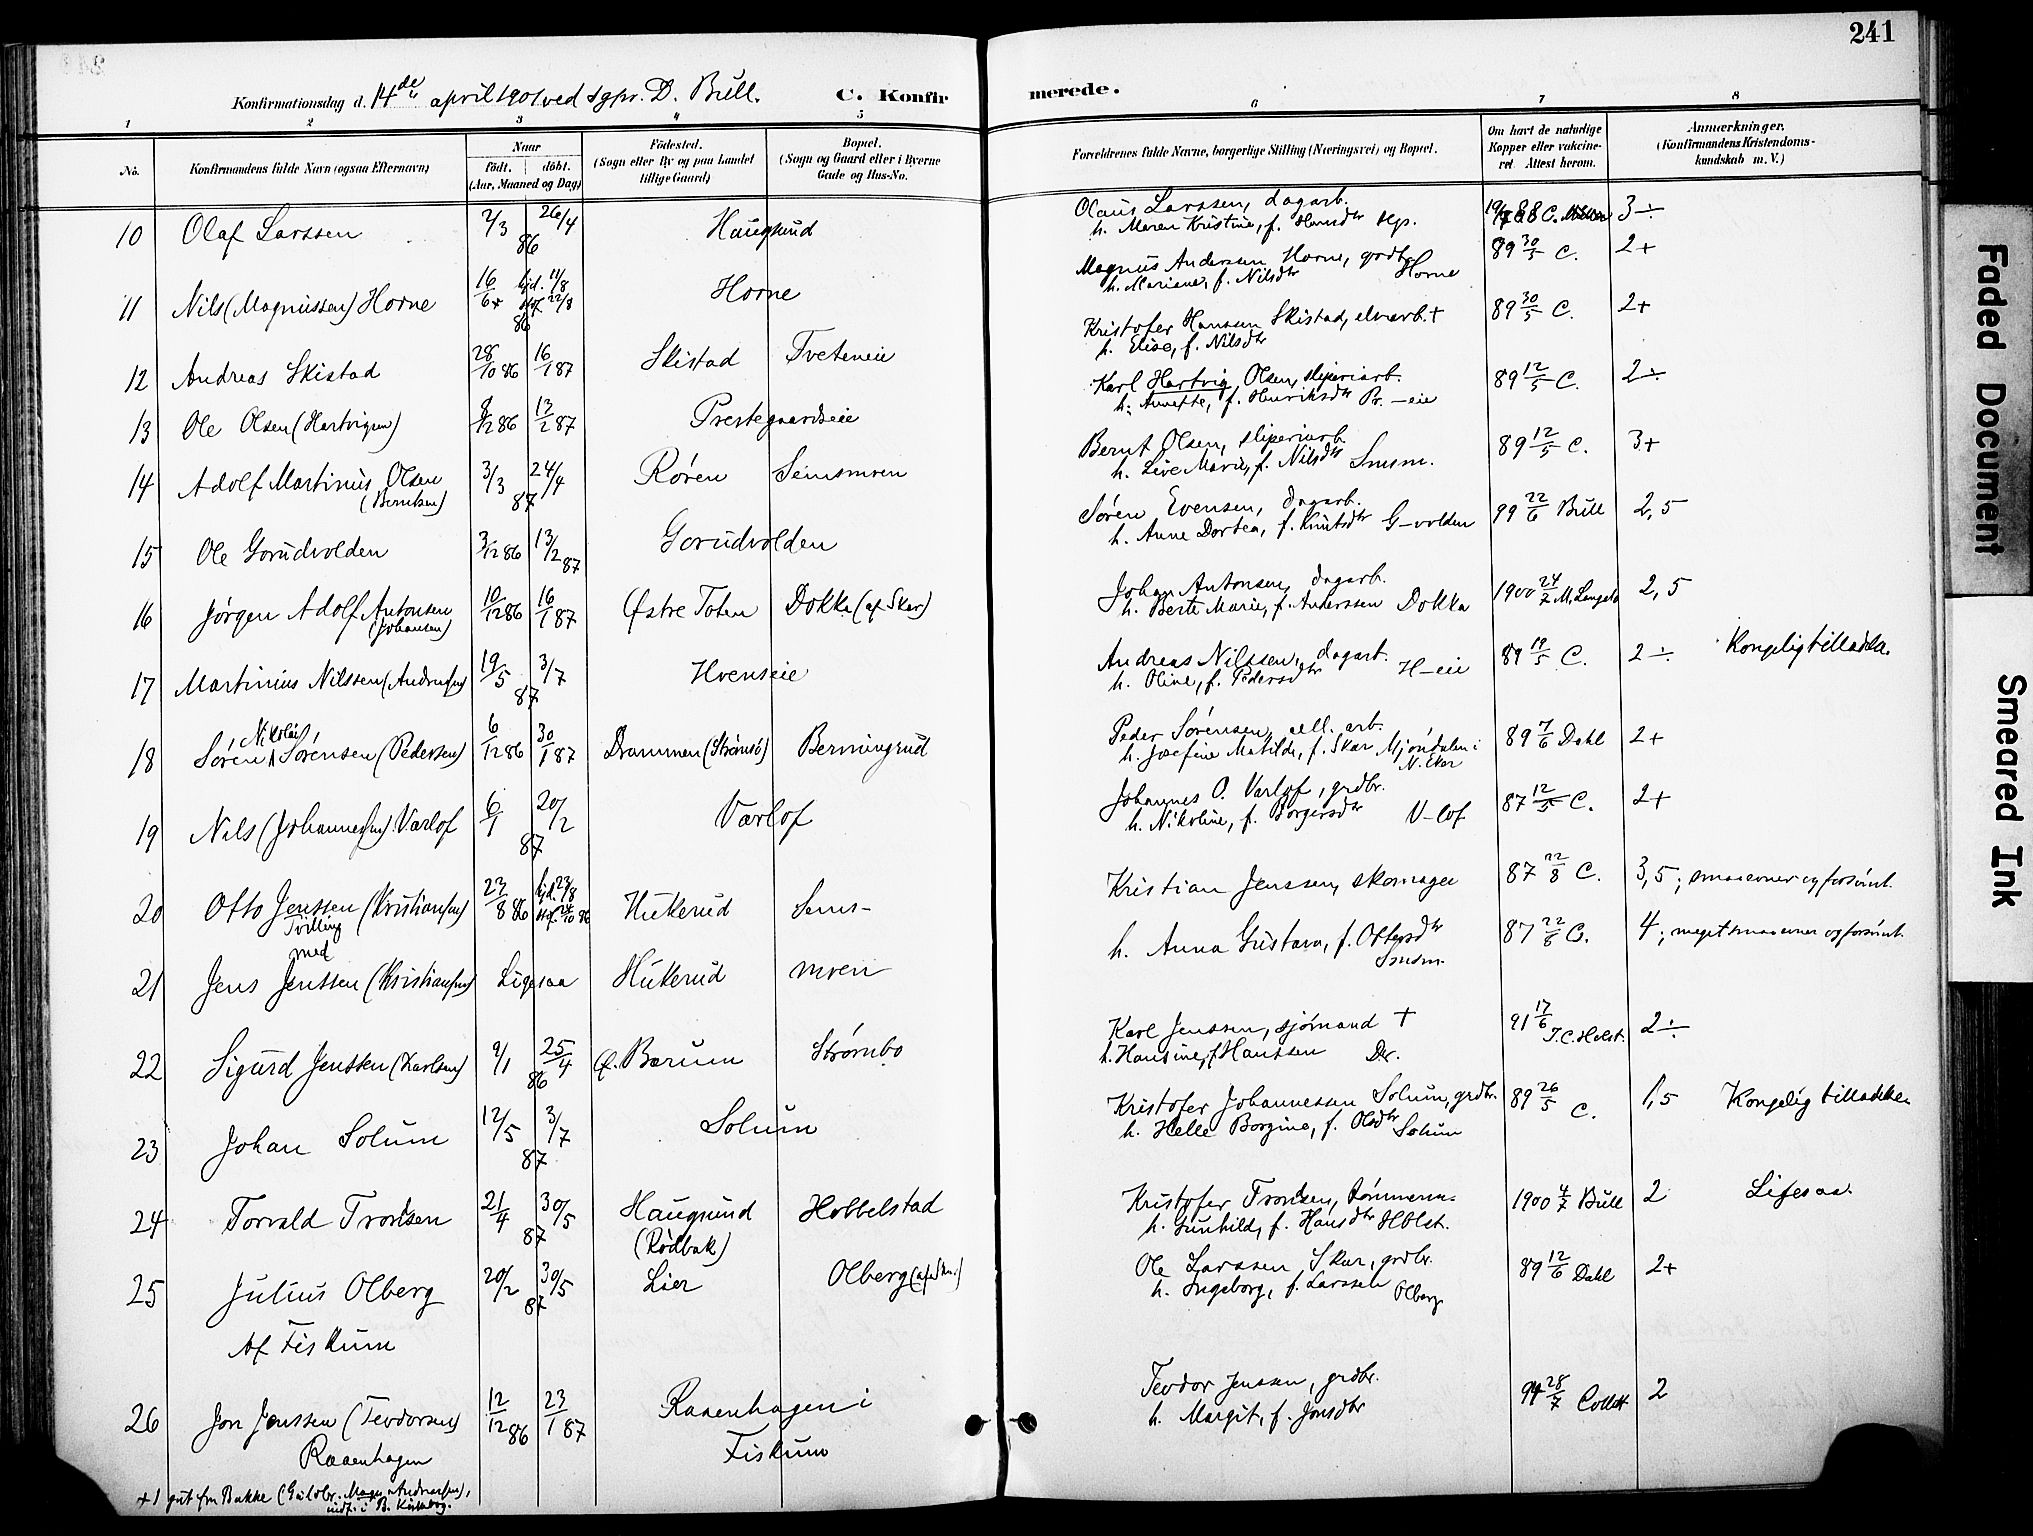 241
Konfirmationsdag d. 14de april 1901 ved sgpr. D. Bull.
C. Konfirmerede.
1 2 3 4 5 6 7 8
No.
Konfirmandens fulde Navn (ogsaa Efternavn)
Naar
født. døbt.
(Aar, Maaned og Dag)
Fødested.
(Sogn eller By og paa Landet
tillige Gaard)
Bopæl.
(Sogn og Gaard eller i Byerne
Gade og Hus-No.
Forældrenes fulde Navne, borgerlige Stilling (Næringsvei) og Bopæl.
Om havt de naturlige
Kopper eller vaccine-
ret. Attest herom.
Anmærkninger.
(Konfirmandens Kristendoms-
kundskab m. V.)
10 Olaf Larssen 2/3 26/4 86 Haugsund
Olaus Larssen, dagarb. 88 C. 3÷
h. Maren Kristine, f. Hansdtr
11 Nils (Magnussen) Horne 16/6 hjd. 11/8 22/8 86 Horne
Magnus Andersen Horne, grdbr. 89 30/5 C. 2+
h. Mariane, f. Nilsdtr Horne
12 Andreas Skistad 28/10 86 16/1 87 Skistad Tveteneie
Kristofer Hanssen Skistad, elvearb. + 89 30/5 C. 2+
h. Elise, f. Nilsdtr
13 Ole Olsen (Hartvigsen) 9/12 86 13/2 87 Prestegaardseie
Karl Hartvig Olsen, sliperiarb. 89 12/5 C. 2÷
h. Annette, f. Henriksdtr Pr.-eie
14 Adolf Martinius Olsen 3/3 24/4 87 Røren Semsmoen
(Berntsen)
Bernt Olsen, sliperiarb. 89 12/5 C. 3+
h. Live Marie, f. Nilsdtr Smsm.
15 Ole Gorudvolden 3/12 86 13/2 87 Gorudvolden
Søren Evensen, dagarb. 99 22/6 Bull 2,5
h. Anne Dortea, f. Knutsdtr G-volden
16 Jørgen Adolf Antonsen 10/12 86 16/1 87 Østre Toten Dokka (af Skar)
(Johansen)
Johan Antonsen, dagarb. 1900 24/7 2,5
h. Berte Marie, f. Anderssen Dokka
17 Martinius Nilssen (Andreassen) 19/5 3/7 87 Hvenseie
Andreas Nilssen, dagarb. 89 19/5 C. 2÷ Kongelig tilladelse.
h. Oline, f. Pedersdtr H-eie
18 Søren Nikolai Sørensen (Pedersen) 6/12 86 30/1 87 Drammen (Strømsø) Berningrud
Peder Sørensen, cell. arb. 89 7/6 Dahl 2+
h. Josefine Matilde, f. Skar Mjøndalen i
N. Eker
19 Nils (Johannessen) Varlof 6/1 20/2 87 Varlof
Johannes O. Varlof, grdbr. 87 12/5 C. 2+
h. Nikoline, f. Borgersdtr V-lof
20 Otto Jenssen (Kristiansen) 23/8 86 hjd. 23/8 24/10 86 Hukerud Sems-
Tvilling
med
Kristian Jenssen, skomager 87 22/8 C. 3,5; smaa evner og forsømt.
21 Jens Jenssen (Kristiansen) Ligesaa Hukerud moen
h. Anna Gustava, f. Ottersdtr 87 22/8 C. 4; meget smaa evner og forsømt.
Smsm.
22 Sigurd Jenssen (Karlsen) 9/1 25/4 86 Ø. Bærum Strømbo
Karl Jenssen, sjømand + 91 17/6 J.C. Holst. 2÷
h. Hansine, f. Hanssen Dr.
23 Johan Solum 12/5 3/7 87 Solum
Kristofer Johannessen Solum, grdbr. 89 26/5 C. 1,5 Kongelig tilladelse
h. Helle Borgine, f. Olsdtr Solum
24 Torvald Trondsen 21/4 30/5 87 Haugsund Hobbelstad
(Rødbak)
Kristofer Trondsen, tømmerm. 1900 4/7 Bull 2 Ligesaa.
h. Gunhild, f. Hansdtr Hblst.
25 Julius Olberg 20/2 30/5 87 Lier Olberg
Ole Larssen Skar, grdbr. 89 12/6 Dahl 2+
h. Ingeborg, f. Larssen Olberg
Af Fiskum
26 Jon Jenssen (Teodorsen) 12/12 86 23/1 87 Raaenhagen i
Raaenhagen Fiskum
Teodor Jenssen, grdbr. 94 28/7 Collett 2
h. Margit, f. Jonsdtr
+ 1 gut fra Bakke
Faded Document
Smeared Ink